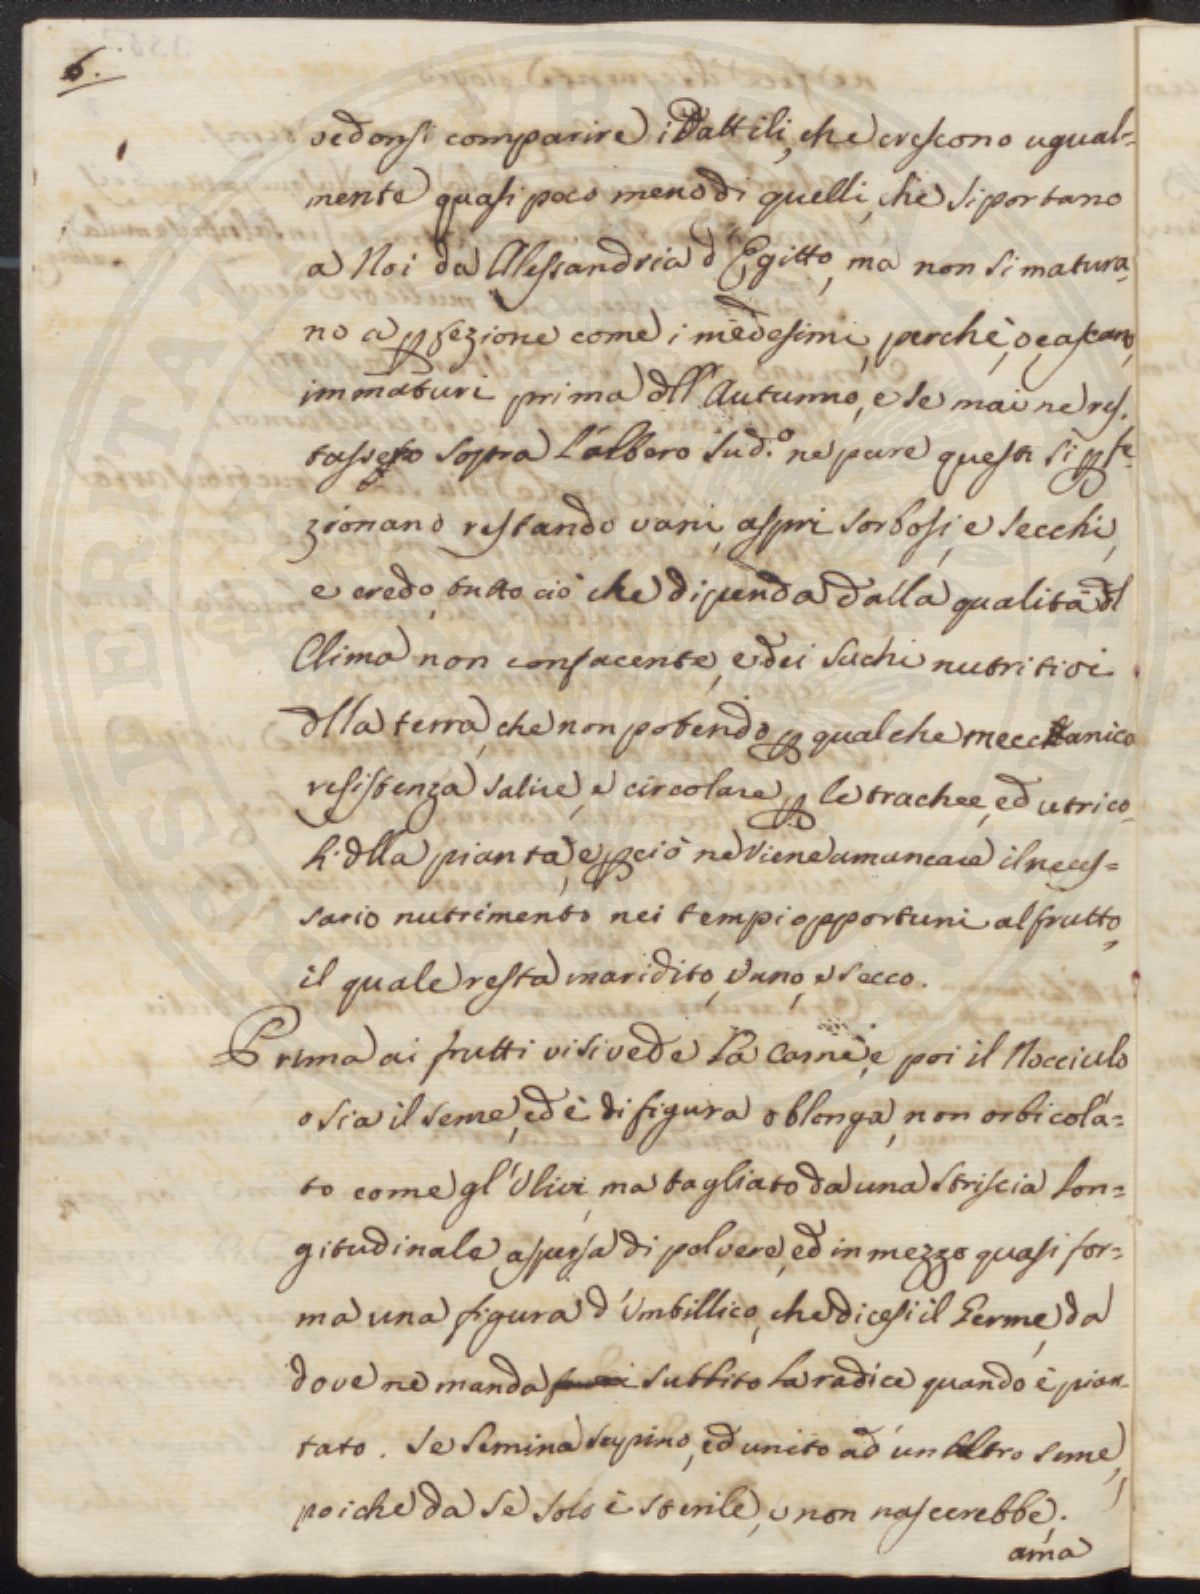 6.
vedonsi comparire i Dattili, che crescono ugual=
mente quasi poco meno di quelli, che si portano
a Noi da Alessandria d'Egitto, ma non si matura
no a pfezione come i medesimi, perchè, o cascano
immaturi prima dll'Autunno, e se mai ne res.
tassero sopra l'albero sud.o ne pure questi si pfe
zionano restando vani, aspri sorbosi, e secchi,
e credo, tutto ciò che dipenda dalla qualità dl
Clima non confacente, e dei suchi nutritivi
dlla terra, che non potendo p qualche mecchanico
resistenza salire, e circolare, p le trachee, ed utrico
li dlla pianta, e pciò ne viene a mancare il neces=
sario nutrimento nei tempi opportuni al frutto,
il quale resta inaridito, vano, e secco.
Prima ai frutti vi si vede la carne, e poi il Nocciulo
o sia il seme, ed è di figura oblonga, non orbicola=
to come gl'Ulivi, ma tagliato da una striscia lon=
gitudinale aspersa di polvere, ed in mezzo quasi for=
ma una figura d'Umbillico, che dicesi il Germe, da
dove ne manda subbito la radice quando è pian
tato. Se semina supino, ed unito ad un altro seme,
poiche da se solo è sterile, e non nascerebbe.
ama
SPERITATE